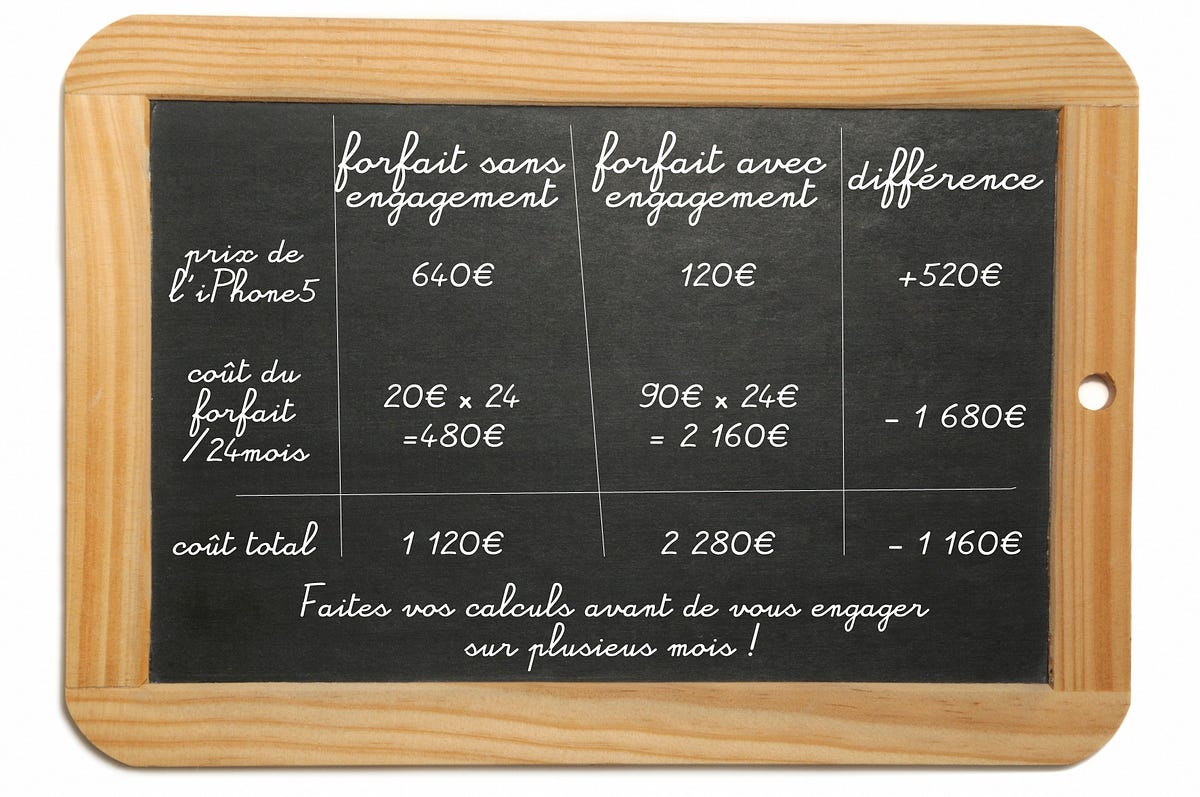 forfait sans
engagement
forfait avec
engagement
différence
prix de
l'iPhone5
640€
120€
+520€
coût du
forfait
/24mois
20€ x 24
=480€
90€ x 24€
= 2 160€
- 1 680€
coût total
1 120€
2 280€
- 1 160€
Faites vos calculs avant de vous engager
sur plusieus mois !